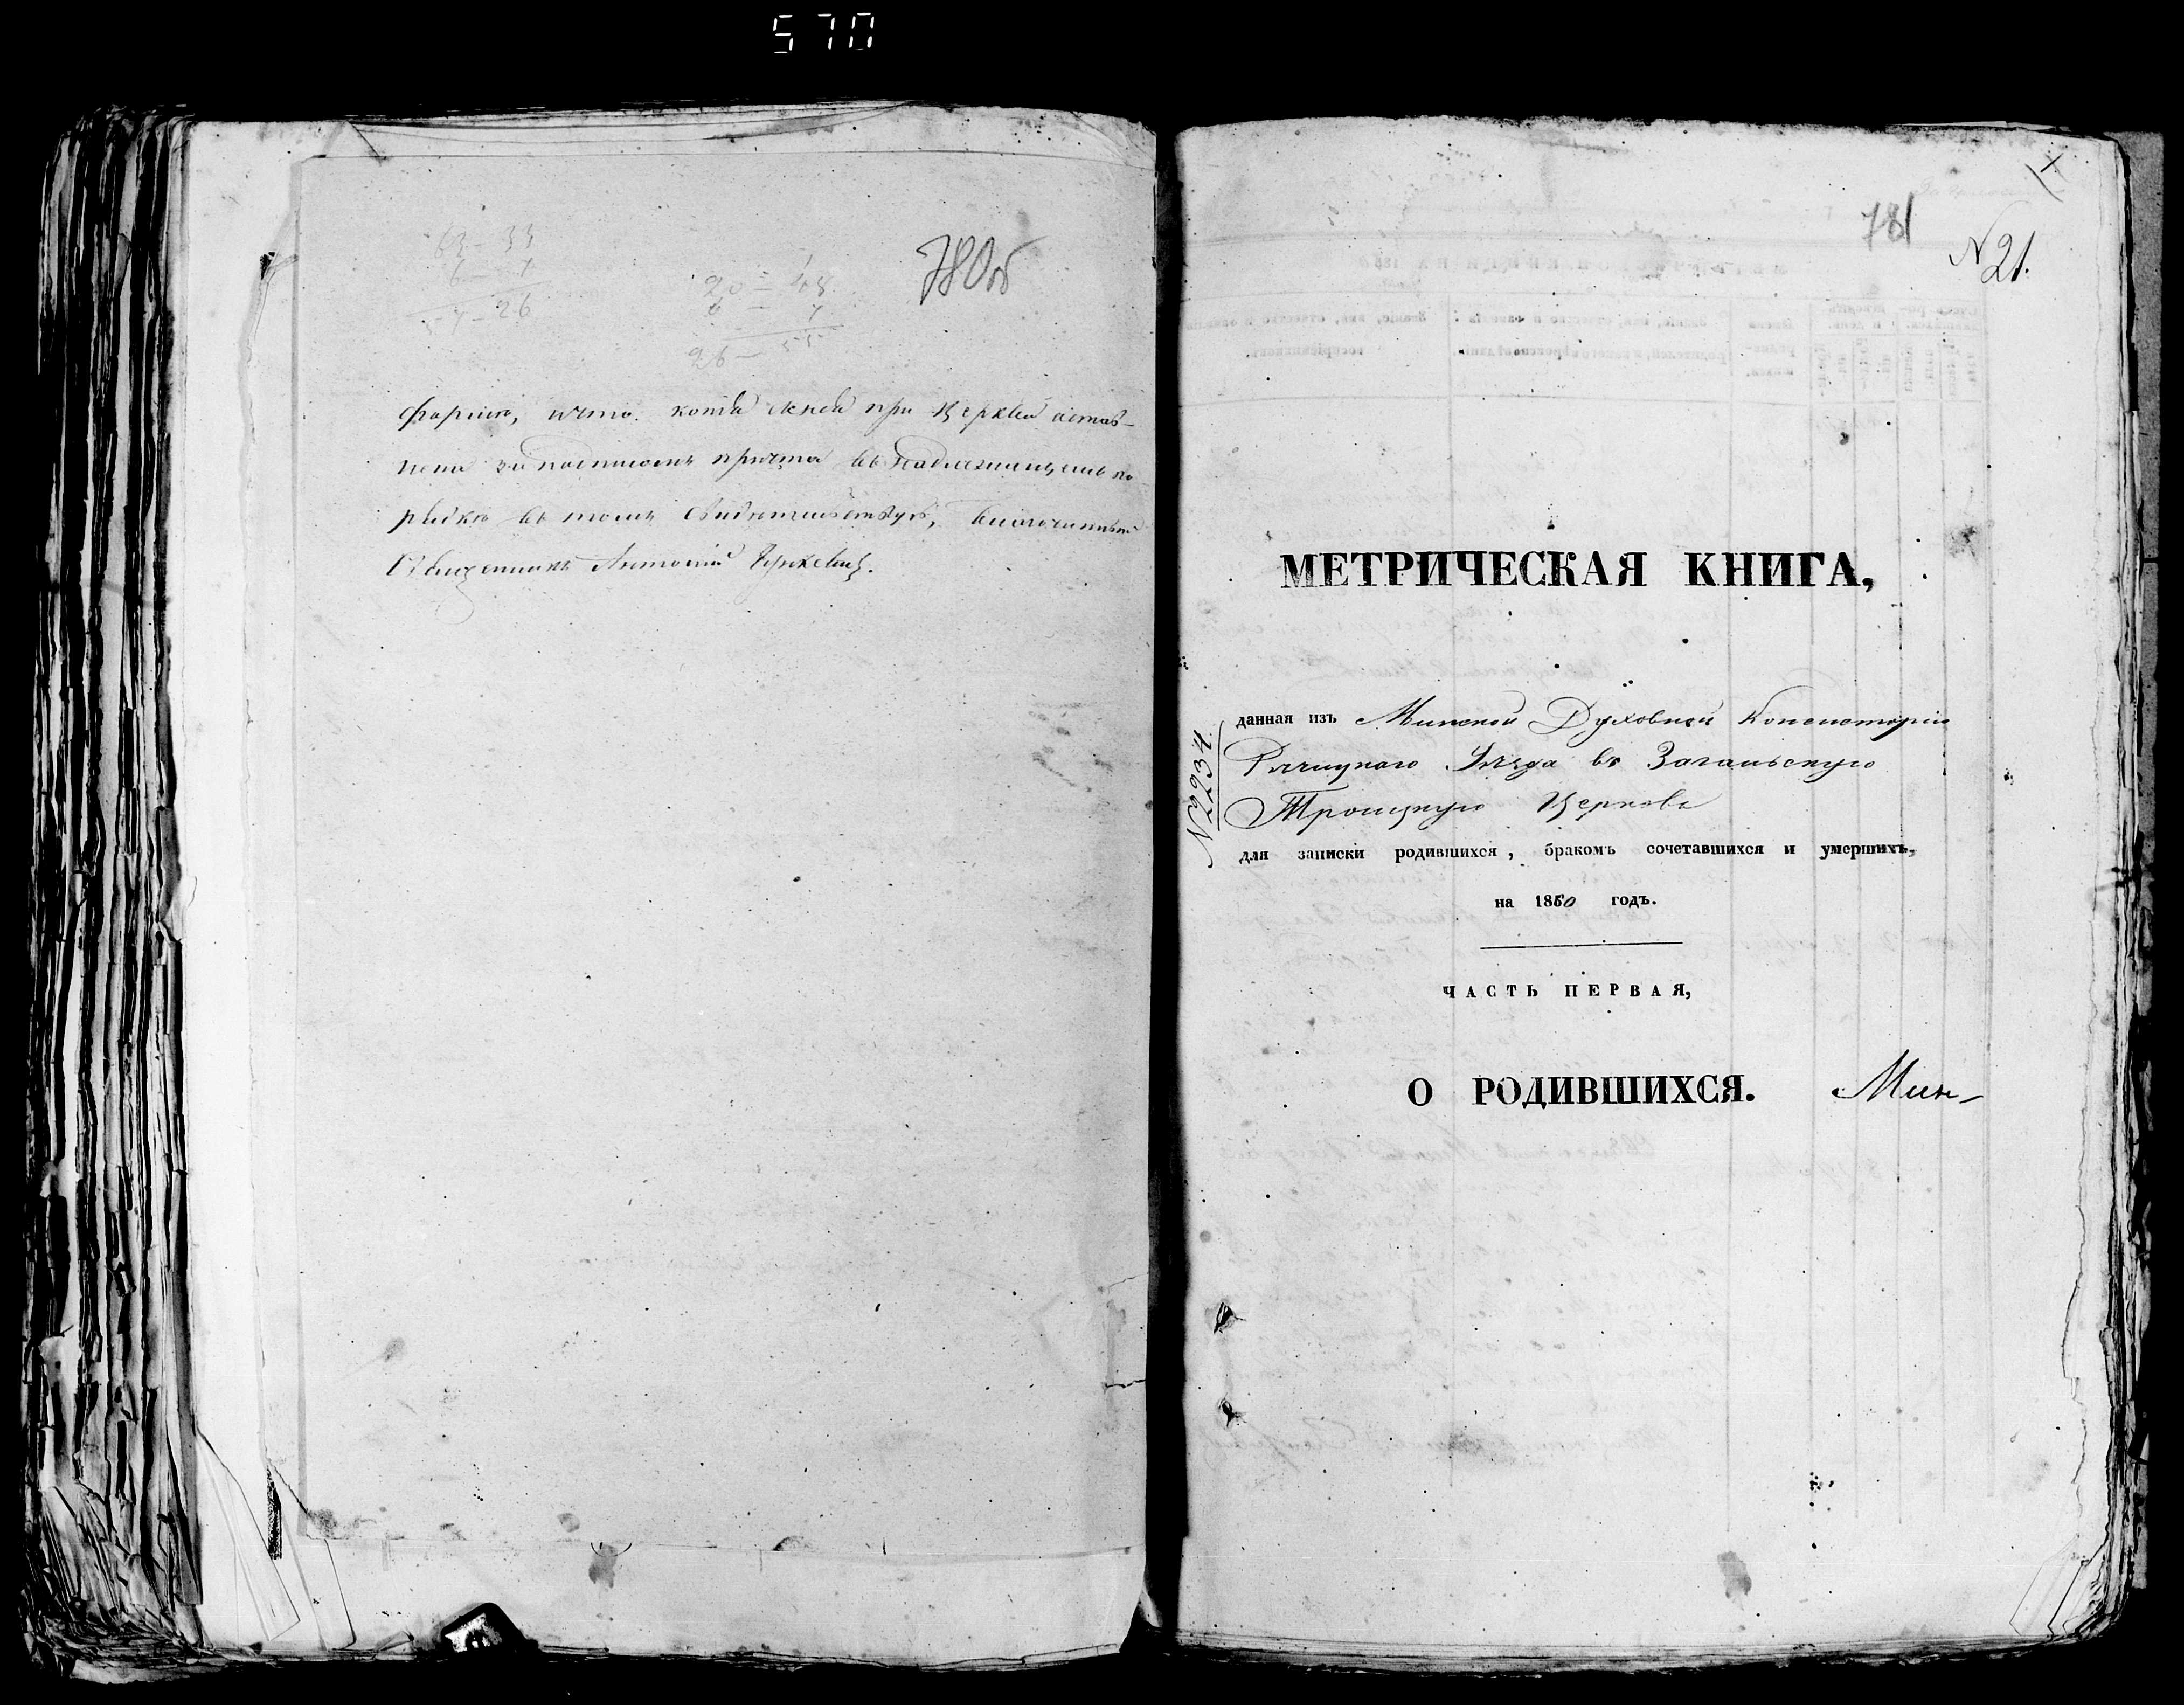 570
63 – 33
6 – 7
57 – 26
20 – 48
6 – 7
26 – 55
780об
форміи, и что копія съ ней при Церкви остав-
лена за подписомъ причта въ надлежащемъ по-
рядкѣ въ томъ свидѣтельствуетъ,
Священникъ Антоній
781
№ 21.
МЕТРИЧЕСКАЯ КНИГА,
данная изъ Минской Духовной Консисторіи
Рѣчицкаго Уѣзда въ Загальскую
Троицкую Церковь
№ 2234
для записки родившихся, бракомъ сочетавшихся и умершихъ,
на 1850 годъ.
ЧАСТЬ ПЕРВАЯ,
О РОДИВШИХСЯ. Мин-